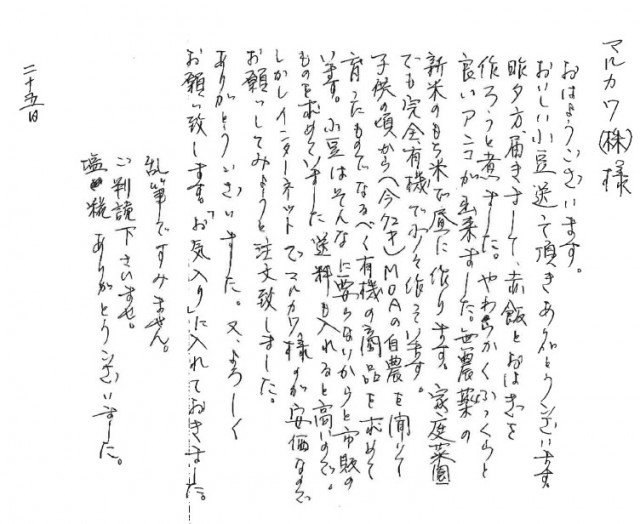 マルカワ(株)様
おはようございます。
おいしい小豆送って頂きありがとうございます。
昨夕方届きまして、赤飯とおはぎを
作ろうと煮ました。やわらかくふっくらと
良いアンコが出来ました。無農薬の
新米のもち米で昼に作ります。家庭菜園
でも完全有機で少々作っています。
子供の頃から(今72才)MOAの自農を聞いて
育ったものでなるべく有機の商品を求めて
います。小豆はそんなに要らないからと市販の
ものを求めていました 送料も入れると高いので。
しかしインターネットでマルカワ様のが安価なので
お願いしてみようと注文致しました。
ありがとうございました。又、よろしく
お願い致します。「お気入り」に入れておきました。
乱筆ですみません。
ご判読下さいませ。
塩糀ありがとうございました。
二十五日